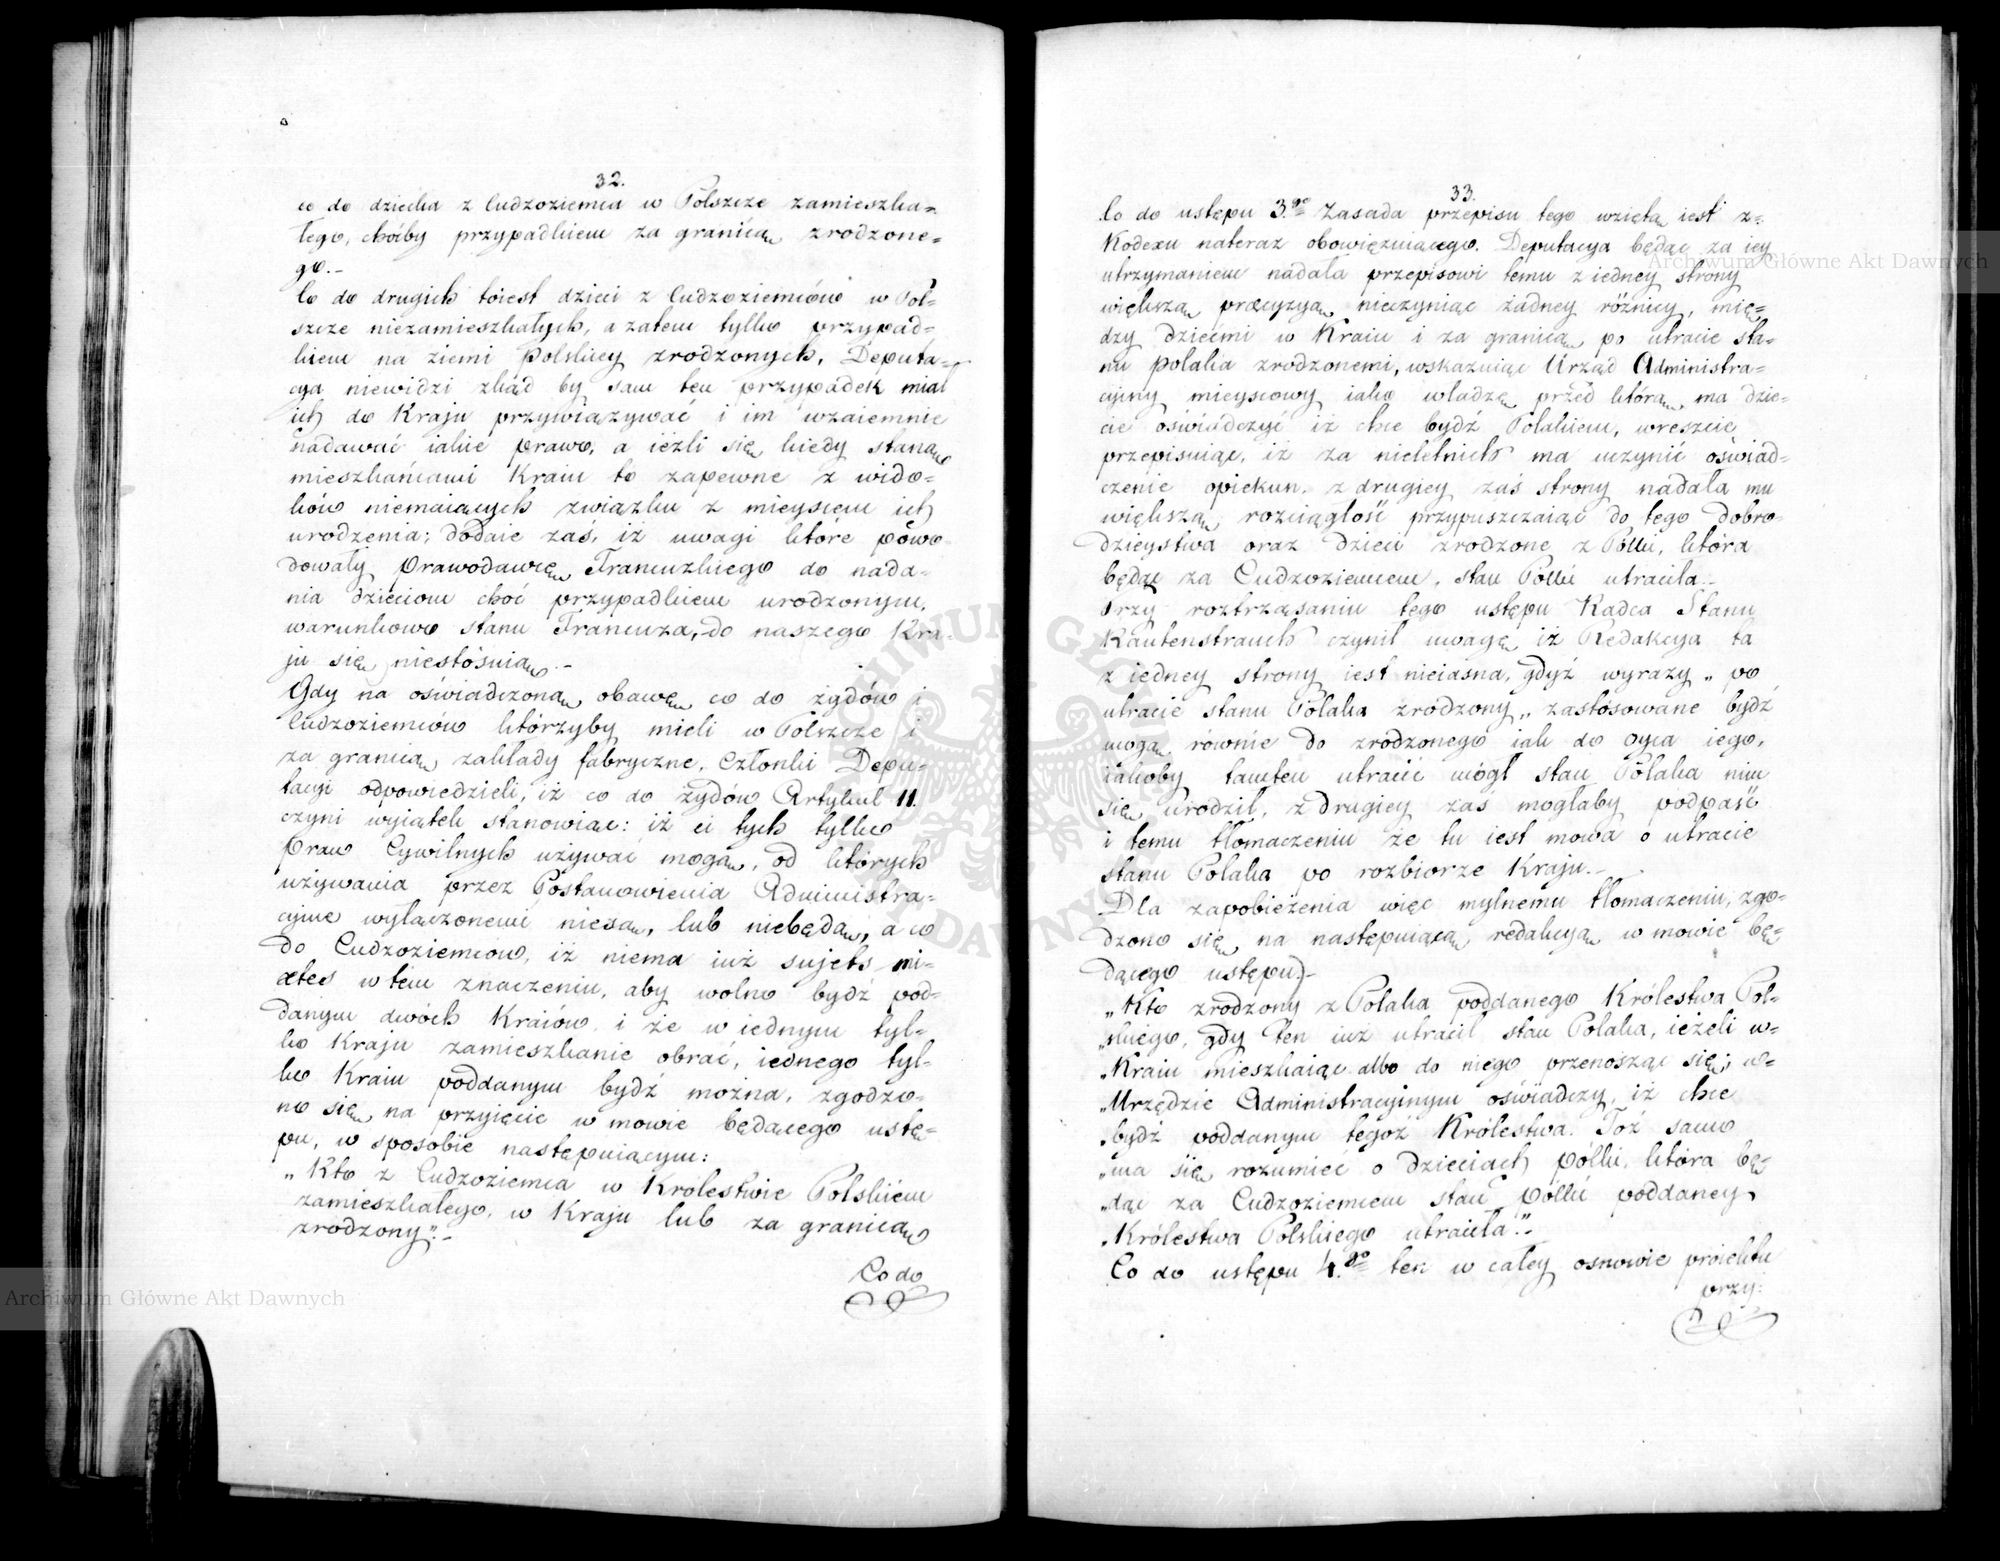 32.
co do dziecka z Cudzoziemca w Polszcze zamieszka=
łego, choćby przypadkiem za granicą zrodzone=
go.-
Co do drugich toiest dzieci z Cudzoziemców w Pol=
szcze niezamieszkałych, a zatem tylko przypad=
kiem na ziemi Polskiey zrodzonych, Deputa=
cya niewidzi zkąd by sam ten przypadek miał
ich do Kraju przywiązywać i im wzaiemnie
nadawać iakie prawo, a ieżli się kiedy staną
mieszkańcami Kraiu to zapewne z wido=
ków niemaiących związku z mieyscem ich
urodzenia; dodaie zaś, iż uwagi które powo
dowały Prawodawcę Francuzkiego do nada=
nia dzieciom choć przypadkiem urodzonym,
warunkowo stanu Francuza, do naszego Kra-
ju się niestósuią.-
Gdy na oświadczoną obawę co do żydów i
Cudzoziemców którzyby mieli w Polszcze i
za granicą zakłady fabryczne, Członki Depu=
tacyi odpowiedzieli, iż co do żydów Artykuł 11.
czyni wyiątek stanowiąc: iż ci tych tylko
Praw Cywilnych używać mogą, od których
używania przez Postanowienia Administra=
cyine wyłączonemi niesą, lub niebędą, a co
do Cudzoziemców, iż niema iuż sujets mi=
xtes w tem znaczeniu, aby wolno bydź pod=
danym dwóch Kraiów, i że w iednym tyl=
ko Kraju zamieszkanie obrać, iednego tyl=
ko Kraiu poddanym bydź można, zgodzo=
no się na przyięcie w mowie będącego ustę=
pu, w sposobie następuiącym:
„Kto z Cudzoziemca w Królestwie Polskiem
zamieszkałego, w Kraju lub za granicą
zrodzony”.-
Co do
33.
Co do ustępu 3.go Zasada przepisu tego wzięta iest z=
Kodexu nateraz obowięzuiącego. Deputacya będąc za iey
utrzymaniem nadała przepisowi temu z iedney strony
większą precyzyą nieczyniąc żadney różnicy, mię=
dzy dziećmi w Kraiu i za granicą po utracie sta=
nu Polaka zrodzonemi, wskazuiąc Urząd Administra=
cyiny mieyscowy iako władzę przed którą ma dzie=
cie oświadczyć iż chce bydź Polakiem, wreszcie
przepisuiąc, iż za nieletnich ma uczynić oświad=
czenie opiekun, z drugiey zaś strony nadała mu
większą rozciągłość przypuszczaiąc do tego dobro=
dzieystwa oraz dzieci zrodzone z Polki, która
będąc za Cudzoziemcem, stan Polki utraciła.-
Przy roztrząsaniu tego ustępu Radca Stanu
Rautenstrauch czynił uwagę iż Redakcya ta
z iedney strony iest nieiasna, gdyż wyrazy „po
utracie stanu Polaka zrodzony„ zastósowane bydź
mogą równie do zrodzonego iak do oyca iego,
iakoby tamten utracić mógł stan Polaka nim
się urodził, z drugiey zaś mogłaby podpaść
i temu tłomaczeniu że tu iest mowa o utracie
stanu Polaka po rozbiorze Kraju.-
Dla zapobieżenia więc mylnemu tłomaczeniu, zgo=
dzono się na następuiącą redakcyą w mowie bę=
dącego ustępu).-
„Kto zrodzony z Polaka poddanego Królestwa Pol=
„skiego, gdy ten iuż utracił stan Polaka, ieżeli w=
„Kraiu mieszkaiąc albo do niego przenosząc się; w=
„Urzędzie Administracyinym oświadczy, iż chce
„bydź poddanym tegoż Królestwa. Toż samo
„ma się rozumieć o dzieciach Polki, która bę=
„dąc za Cudzoziemcem stan Polki poddaney
„Królestwa Polskiego utraciła”.-
Co do ustępu 4.go ten w całey osnowie proiektu
przy:
Archiwum Główne Akt Dawnych
Archiwum Główne Akt Dawnych
ARCHIWUM GŁÓWNE AKT DAWNYCH